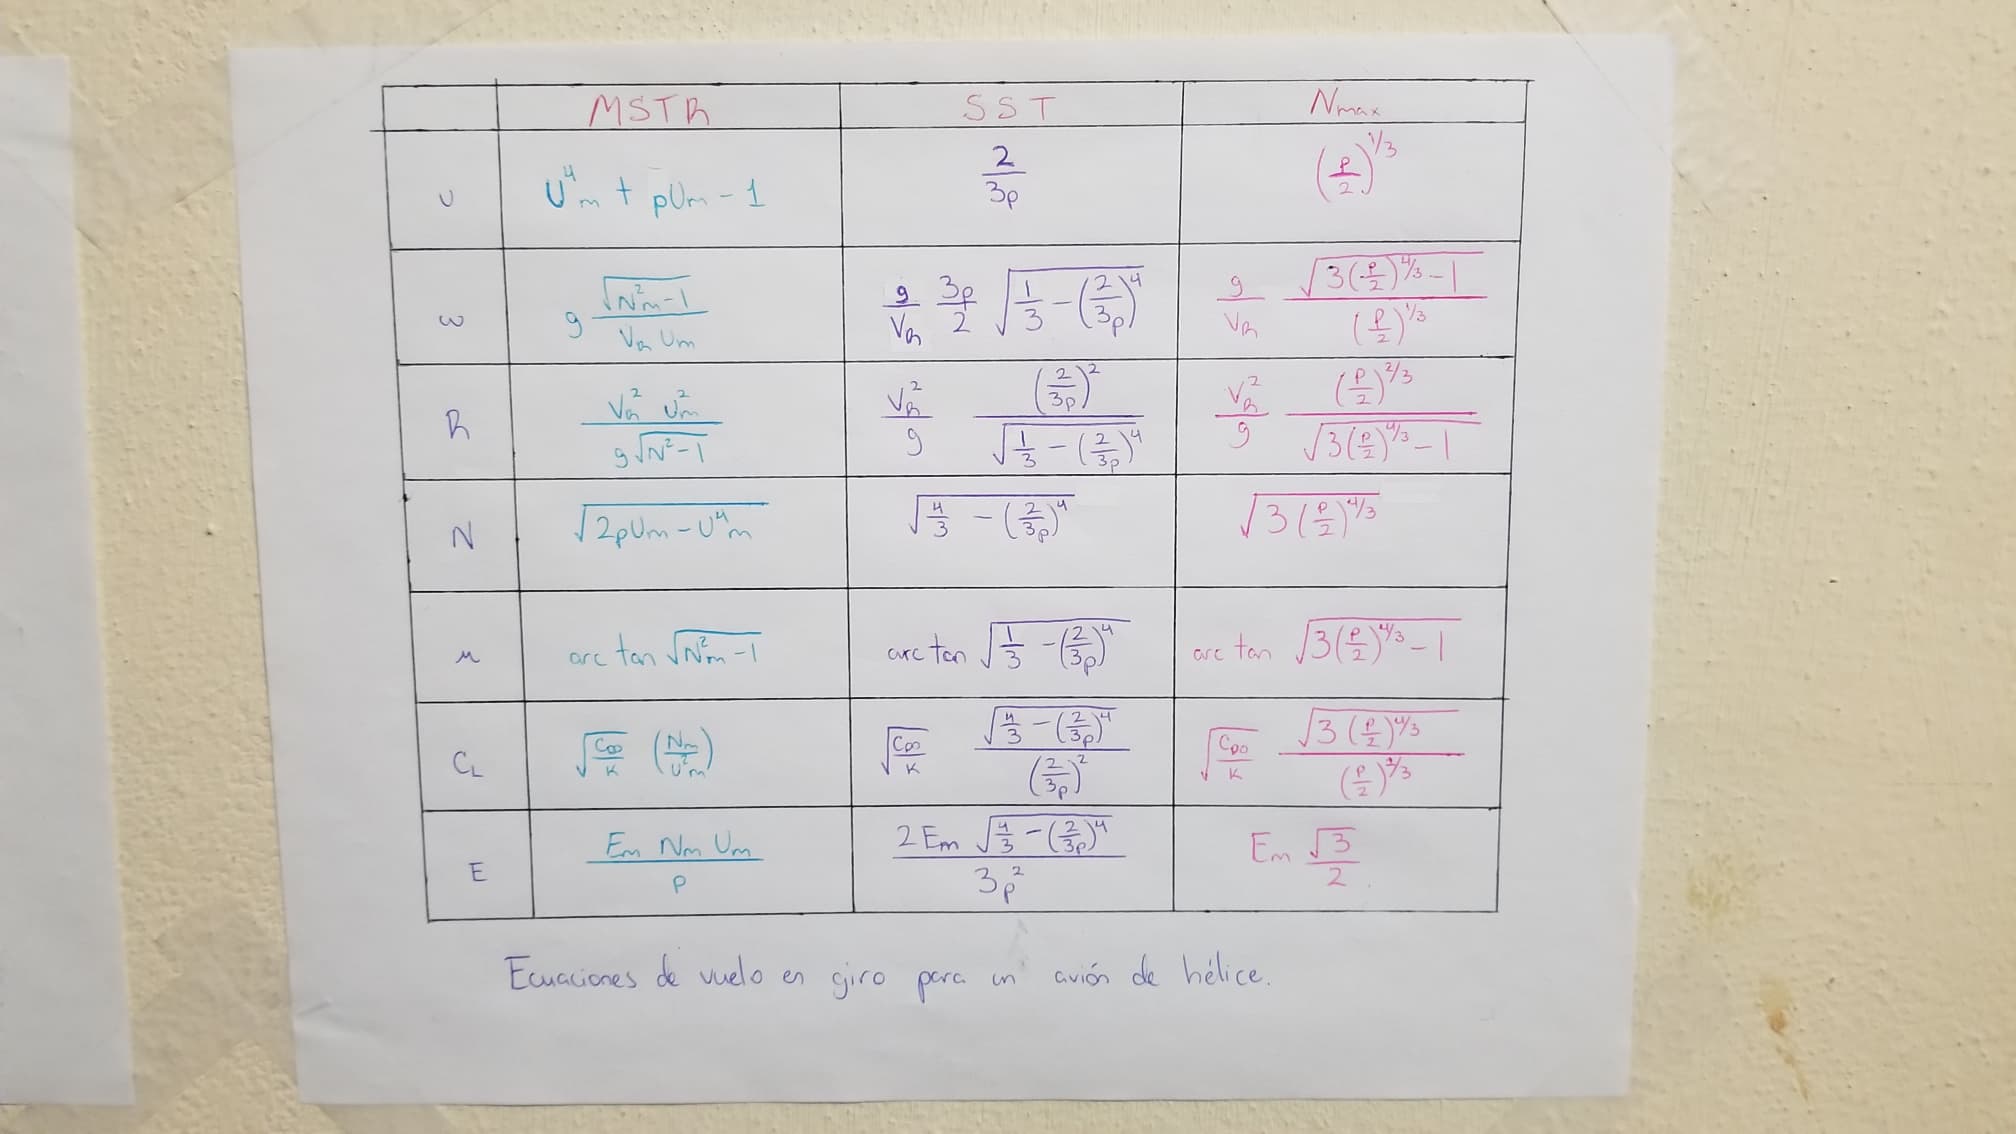 MSTR SST Nmax
u U⁴m + pUm - 1 2/3p (p/2)^1/3
ω g √(N²m-1)/(V_R Um) g/V_R 3p/2 √(1/3 - (2/3p)⁴) g/V_R √(3(p/2)^4/3 - 1)/(p/2)^1/3
R V_R² U²m/(g√(N²-1)) V_R²/g (2/3p)²/√(1/3 - (2/3p)⁴) V_R²/g (p/2)^2/3/√(3(p/2)^4/3 - 1)
N √(2pUm - U⁴m) √(4/3 - (2/3p)⁴) √(3(p/2)^4/3)
μ arc tan √(N²m - 1) arc tan √(1/3 - (2/3p)⁴) arc tan √(3(p/2)^4/3 - 1)
C_L √(C_D0/K) (Nm/U²m) √(C_D0/K) √(4/3 - (2/3p)⁴)/(2/3p)² √(C_D0/K) √(3(p/2)^4/3)/(p/2)^2/3
E Em Nm Um/p 2Em √(4/3 - (2/3p)⁴)/3p² Em √3/2
Ecuaciones de vuelo en giro para un avión de hélice.